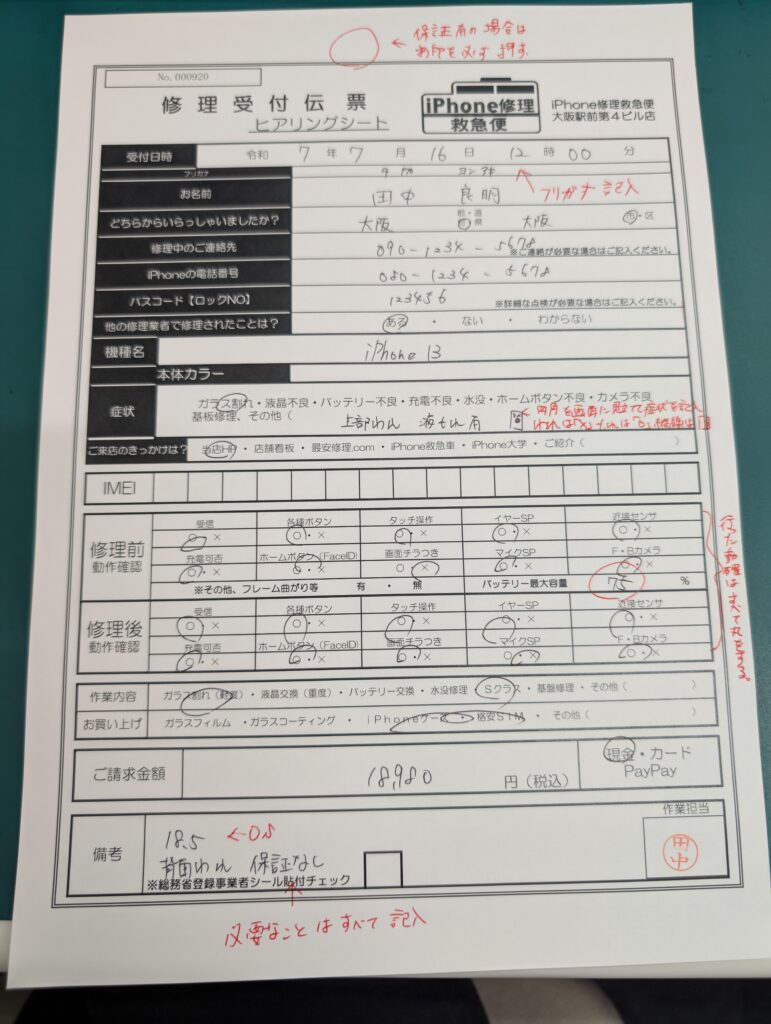 ← 保証有の場合は
必ず押す
No. 000920
修理受付伝票
ヒアリングシート
iPhone修理
救急便
iPhone修理救急便
大阪駅前第4ビル店
受付日時 令和 7 年 7 月 16 日 12 時 00 分
フリガナ
お名前 田中 良明
フリガナ 記入
どちらからいらっしゃいましたか? 大阪 都・道 府・県 大阪 市・区
修理中のご連絡先 090-1234-5678 ※ご連絡が必要な場合はご記入ください。
iPhoneの電話番号 080-1234-5678
パスコード【ロックNO】 123456 ※詳細な点検が必要な場合はご記入ください。
他の修理業者で修理されたことは? ある ・ ない ・ わからない
機種名 iPhone 13
本体カラー
症状 ガラス割れ・液晶不良・バッテリー不良・充電不良・水没・ホームボタン不良・カメラ不良
基板修理、その他( 上部われ 有
ご来店のきっかけは? 当店HP・店舗看板・最安修理.com・iPhone救急車・iPhone大学・ご紹介( )
IMEI
修理前
動作確認
受信 各種ボタン タッチ操作 イヤーSP 近接センサ
○・× ○・× ○・× ○・× ○・×
充電可否 ホームボタン(FaceID) 画面チラつき マイクSP F・Bカメラ
○・× ○・× ○・× ○・× ○・×
※その他、フレーム曲がり等 有 ・ 無 バッテリー最大容量 75 %
修理後
動作確認
受信 各種ボタン タッチ操作 イヤーSP 近接センサ
○・× ○・× ○・× ○・× ○・×
充電可否 ホームボタン(FaceID) 画面チラつき マイクSP F・Bカメラ
○・× ○・× ○・× ○・× ○・×
行った動確はすべて丸をする。
作業内容 ガラス割れ(軽度)・液晶交換(重度)・バッテリー交換・水没修理・Sクラス・基盤修理・その他( )
お買い上げ ガラスフィルム ・ガラスコーティング ・ iPhoneケース ・ 格安SIM ・ その他( )
ご請求金額 18,980 円(税込) 現金・カード
PayPay
作業担当
備考 18.5 ←OS
背面われ 保証なし
※総務省登録事業者シール貼付チェック
田中
必要なことはすべて記入